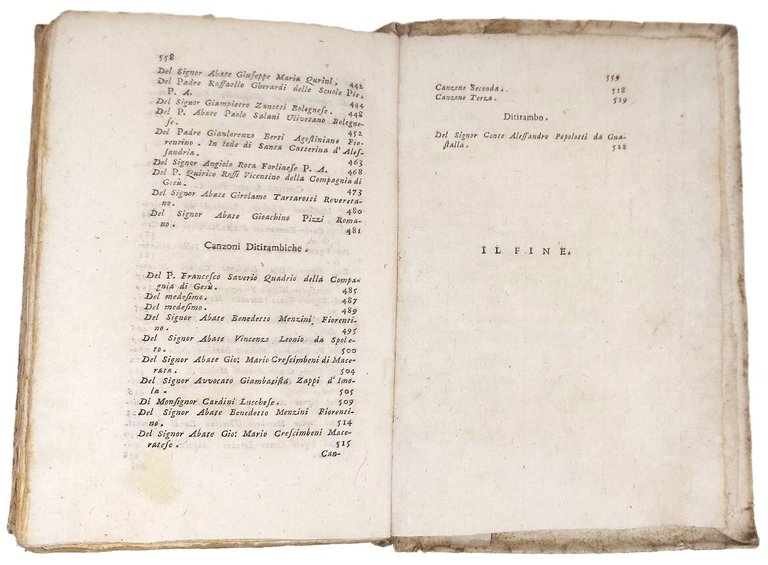 558
Del Signor Abate Giuseppe Maria Qurini. 442
Del Padre Raffaello Gherardi delle Scuole Pie.
P. A. 444
Del Signor Giampietro Zanotti Bolognese. 448
Del P. Abate Paolo Salani Ulivetano Bologne-
se. 452
Del Padre Gianlorenzo Berti Agostiniano Fio-
rentino. In lode di Santa Catterina d' Ales-
sandria. 463
Del Signor Angiolo Rota Forlinese P. A. 468
Del P. Quirico Rossi Vicentino della Compagnia di
Gesù. 473
Del Signor Abate Girolamo Tartarotti Rovereta-
no. 480
Del Signor Abate Gioachino Pizzi Roma-
no. 481
Canzoni Ditirambiche.
Del P. Francesco Saverio Quadrio della Compa-
gnia di Gesù. 485
Del medesimo. 487
Del medesimo. 489
Del Signor Abate Benedetto Menzini, Fiorenti-
no. 495
Del Signor Abate Vincenzo Leonio da Spole-
to. 500
Del Signor Abate Gio: Mario Crescimbeni di Ma-
cerata. 504
Del Signor Avvocato Giambatista Zappi d' Imo-
la. 505
Di Monsignor Cardini Lucchese. 509
Del Signor Abate Benedetto Menzini Fioren-
tino. 514
Del Signor Abate Gio: Mario Crescimbeni Mace-
ratese. 515
Can-
559
Canzone Seconda. 518
Canzone Terza. 519
Ditirambo.
Del Signor Conte Alessandro Pepolotti da Gua-
stalla. 528
IL FINE.